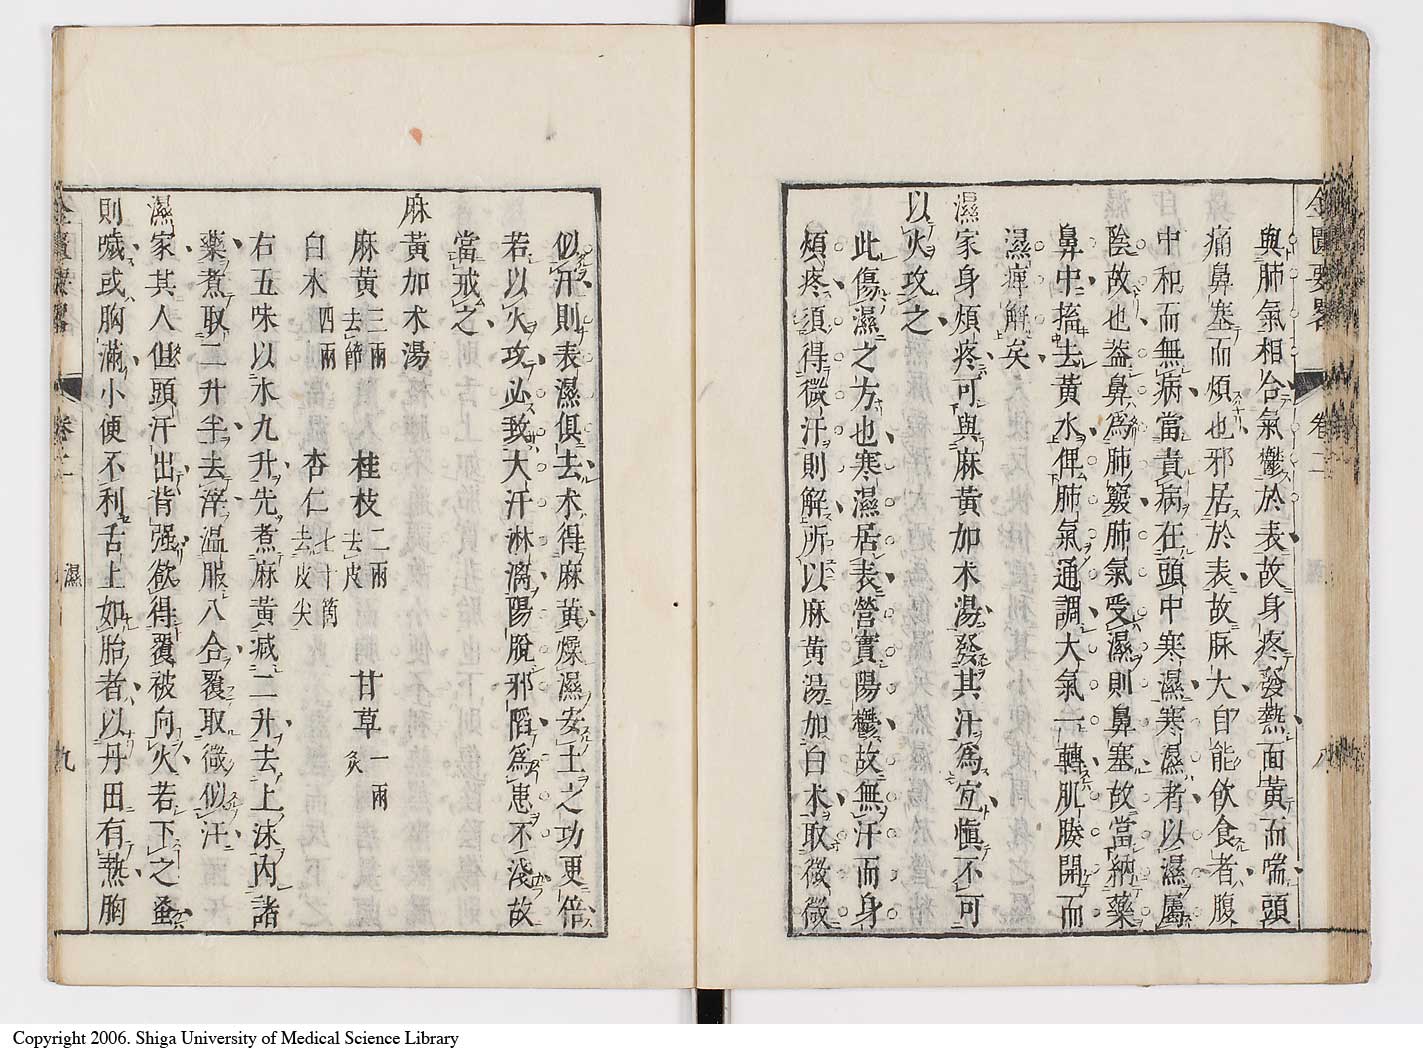 金匱要畧 卷二 濕 八
與肺氣相合氣鬱於表故身疼發熱面黃而喘頭
痛鼻塞而煩也邪居於表故脉大自能飲食者腹
中和而無病當責病在頭中寒濕寒濕者以濕屬
陰故也葢鼻爲肺竅肺氣受濕則鼻塞故當納藥
鼻中搐去黃水俾肺氣通調大氣一轉肌腠開而
濕痺解矣
濕家身煩疼可與麻黃加朮湯發其汗爲宜愼不可
以火攻之
此傷濕之方也寒濕居表營實陽鬱故無汗而身
煩疼須得微汗則解所以麻黃湯加白朮取微微
似汗則表濕俱去朮得麻黃燥濕安土之功更倍
若以火攻必致大汗淋漓陽脫邪陷爲患不淺故
當戒之
麻黃加朮湯
麻黃三兩去節 桂枝二兩去皮 甘草一兩炙
白朮四兩 杏仁七十箇去皮尖
右五味以水九升先煮麻黃减二升去上沫內諸
藥煮取二升半去滓温服八合覆取微似汗
濕家其人但頭汗出背强欲得覆被向火若下之蚤
則噦或胸滿小便不利舌上如胎者以丹田有熱胸
金匱要畧 卷二 濕 九
Copyright 2006. Shiga University of Medical Science Library